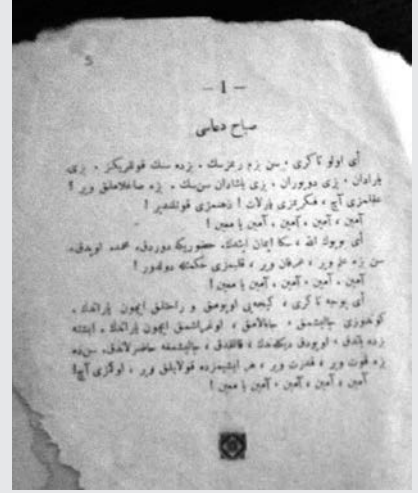 5
— 1 —
صباح دعاسی
أی اولو تاکری ، سن بزم ربمزسك . بزده سنك قوللریكز . بزی
یارادان ، بزی دویوران ، بزی یاشادان سن‌سك . بزه صاغلاملق ویر !
عقلمزی آچ ، فكرمزی پارلات ! ذهنمزی قوتلندیر !
آمین ، آمین ، آمین ، آمین یا معین !
أی بویوك الله ، سكا ایمان ایتدك . حضوریكده دوردق . محمده اویدق .
سن بزه علم ویر ، عرفان ویر ، قلبمزی حكمتله دولدور !
آمین ، آمین ، آمین ، آمین یا معین !
أی یوجه تاکری ، كیجه‌یی اویومق و راحتلق ایچون یاراتدك .
كوندوزی چالیشمق ، چابالامق ، اوغراشمق ایچون یاراتدك . ایشته
بزده یاتدق ، اویودق دیكلندك ، قالقدق ، چالیشمغه حاضرلاندق . سن‌ده
بزه قوت ویر ، قدرت ویر ، هر ایشیمزده قولایلق ویر ، اوكمزی آچ !
آمین ، آمین ، آمین ، آمین یا معین !